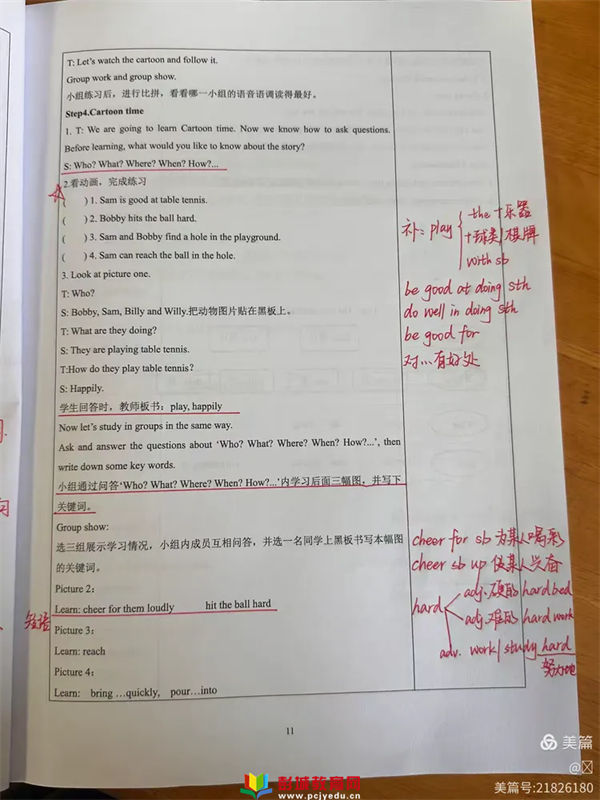 T: Let's watch the cartoon and follow it.
Group work and group show.
小组练习后，进行比拼，看看哪一小组的语音语调读得最好。
Step4.Cartoon time
1. T: We are going to learn Cartoon time. Now we know how to ask questions.
Before learning, what would you like to know about the story?
S: Who? What? Where? When? How?...
2.看动画，完成练习
( ) 1. Sam is good at table tennis.
( ) 2. Bobby hits the ball hard.
( ) 3. Sam and Bobby find a hole in the playground.
( ) 4. Sam can reach the ball in the hole.
3. Look at picture one.
T: Who?
S: Bobby, Sam, Billy and Willy.把动物图片贴在黑板上。
T: What are they doing?
S: They are playing table tennis.
T:How do they play table tennis?
S: Happily.
学生回答时，教师板书：play, happily
Now let's study in groups in the same way.
Ask and answer the questions about 'Who? What? Where? When? How?...', then
write down some key words.
小组通过问答'Who? What? Where? When? How?...'内学习后面三幅图，并写下
关键词。
Group show:
选三组展示学习情况，小组内成员互相问答，并选一名同学上黑板书写本幅图
的关键词。
Picture 2:
Learn: cheer for them loudly hit the ball hard
Picture 3:
Learn: reach
Picture 4:
Learn: bring …quickly, pour…into
补: play
the +乐器
+球类, 棋牌
with sb
be good at doing sth
do well in doing sth
be good for
对…有好处
cheer for sb 为某人喝彩
cheer sb up 使某人兴奋
hard
adj. 硬的 hard bed
adj. 难的 hard work
adv. work/study hard
努力地
短语
11
美篇
@
美篇号:21826180
彭城教育网
www.pcjyedu.cn